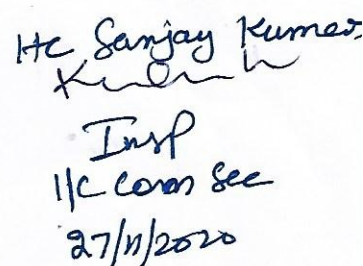 Hc Sanjay Kumar
Insp
I/C Comn Sec
27/11/2020